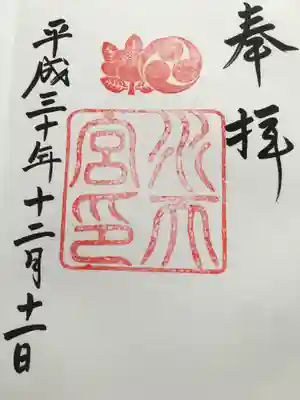 奉拝
水天
宮印
平成三十年十二月十一日